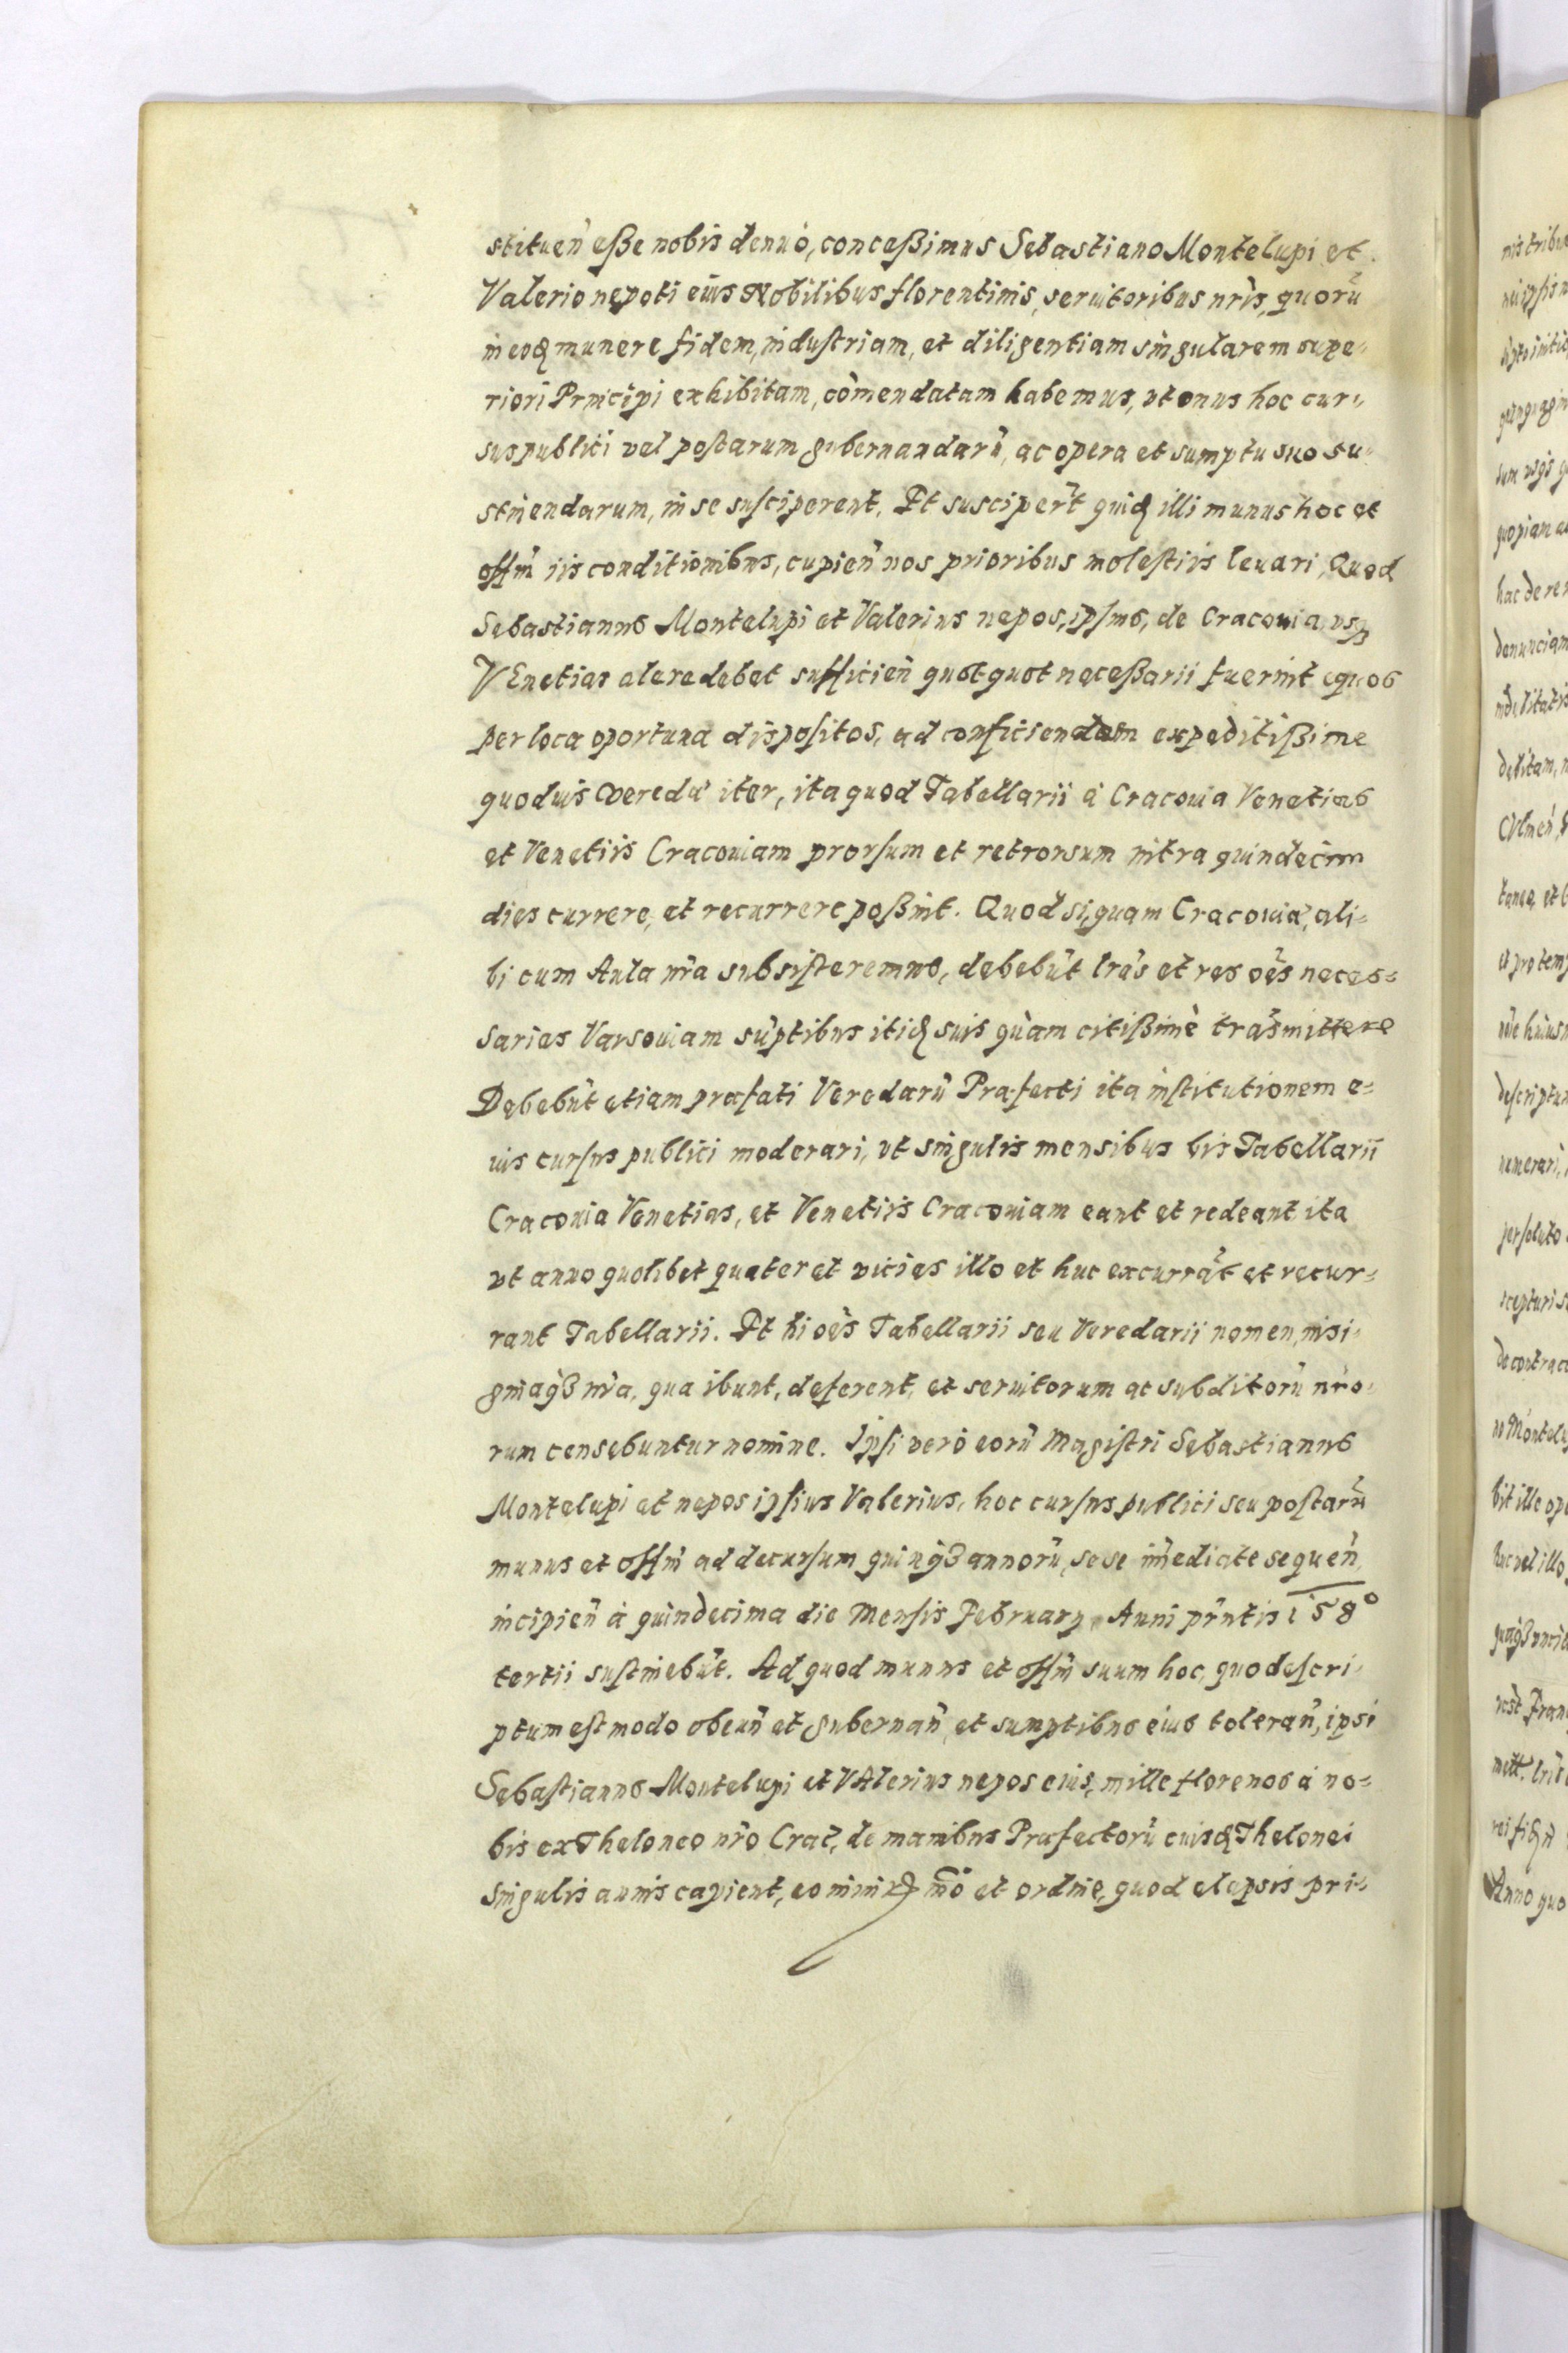 stituen̄ eße nobis denuò, conceßimus Sebastiano Montelupi et
Valerio nepoti eius Nobilibus florentinis, seruitoribus nr̄is, quorū
in eodꝫ munere fidem, industriam, et diligentiam singularem supe-
riori Principi exhibitam, com̄endatam habemus, vt onus hoc cur-
sus publici vel postarum gubernandarū, ac opera et sumptu suo su-
stinendarum, in se susciperent. Et susciper̄t quidꝫ illi munus hoc et
offm̄ iis conditionibus, cupien̄ nos prioribus molestiis leuari, Quod
Sebastianus Montelupi et Valerius nepos, ipsius, de Cracouia usqꝫ
VEnetias alere debet sufficien̄ quotquot neceßarii fuerint equos
per loca oportuna dispositos, ad conficiendam expeditißime
quoduis veredū iter, ita quod Tabellarii à Cracouia Venetias
et Venetiis Cracouiam prorsum et retrorsum intra quindecim
dies currere, et recurrere poßint. Quod si, quam Cracouiā, ali-
bi cum Aula nr̄a subsisteremus, debebūt lrā̄s et res oēs neces-
sarias Varsouiam sūptibus itidꝫ suis quàm citißimè trāsmittere
Debebūt etiam præfati Veredarū Præfecti ita institutionem e-
uis cursus publici moderari, vt singulis mensibus bis Tabellarii
Cracouia Venetias, et Venetiis Cracouiam eant et redeant ita
vt anno quolibet quater et vicies illo et huc excurrāt et recur-
rant Tabellarii. Et hi oēs Tabellarii seu Veredarii nomen, insi-
gniaqꝫ nr̄a, qua ibunt, deferent, et seruitorum ac subditorū nr̄o-
rum censebuntur nomine. Ipsi verò eorū Magistri Sebastianus
Montelupi et nepos ipsius Valerius, hoc cursus publici seu postarū
munus et offm̄ ad decursum quinqꝫ annorū, sese im̄ediate sequen̄,
incipien̄ à quindecima die Mensis Februarij Anni pr̄ntis 158°
tertii sustinebūt. Ad quod munus et offm̄ suum hoc, quo descri-
ptum est modo obeun̄ et gubernan̄, et sumptibus eius toleran̄, ipsi
Sebastianus Montelupi et VAlerius nepos eius, mille florenos à no-
bis ex Theloneo nr̄o Crac̄, de manibus Præfectorū euisdꝫ Thelonei
Singulis annis capient, eo nimirꝫ mō et ordine, quod elapsis pri-